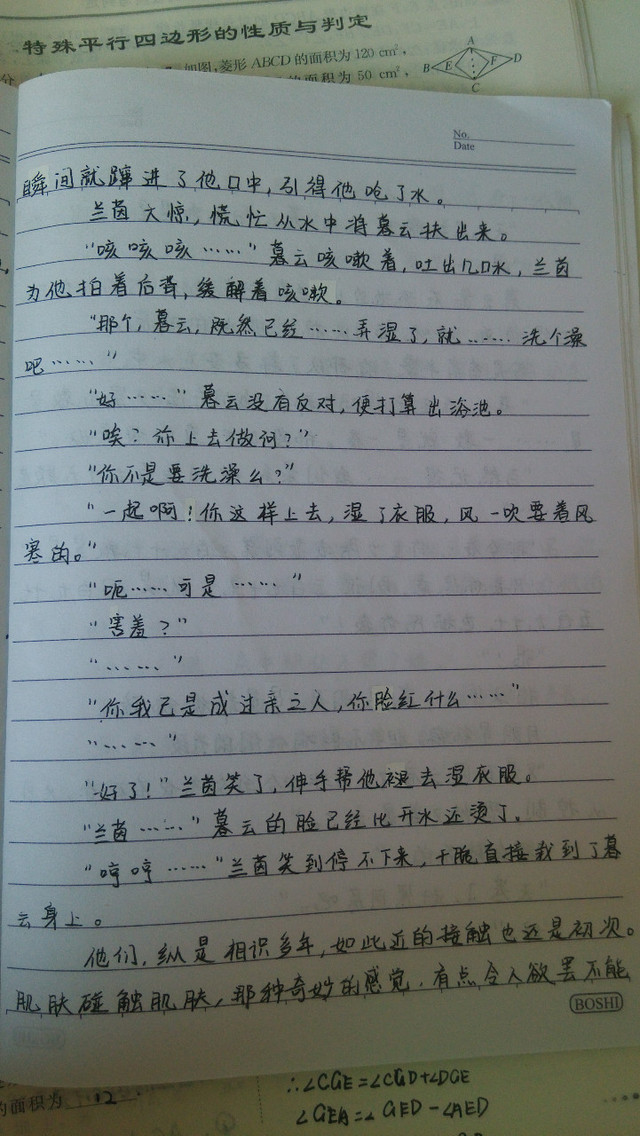 特殊平行四边形的性质与判定
如图,菱形ABCD的面积为120 cm²,
的面积为50 cm²,
A
B E F D
C
No.
Date
瞬间就蹿进了他口中,引得他呛了水。
兰茵大惊,慌忙从水中将暮云扶出来。
“咳咳咳……”暮云咳嗽着,吐出几口水,兰茵
为他拍着后背,缓解着咳嗽。
“那个,暮云,既然已经……弄湿了,就……洗个澡
吧……”
“好……”暮云没有反对,便打算出浴池。
“唉?你上去做何?”
“你不是要洗澡么?”
“一起啊!你这样上去,湿了衣服,风一吹要着风
寒的。”
“呃……可是……”
“害羞?”
“……”
“你我已是成过亲之人,你脸红什么……”
“……”
“好了!”兰茵笑了,伸手帮他褪去湿衣服。
“兰茵……”暮云的脸已经比开水还烫了。
“哼哼……”兰茵笑到停不下来,干脆直接栽到了暮
云身上。
他们,纵是相识多年,如此近的接触也还是初次。
肌肤碰触肌肤,那种奇妙的感觉,有点令人欲罢不能
BOSHI
的面积为 12
∴∠CGE=∠CGD+∠DGE
∠GEA=∠GED-∠AED